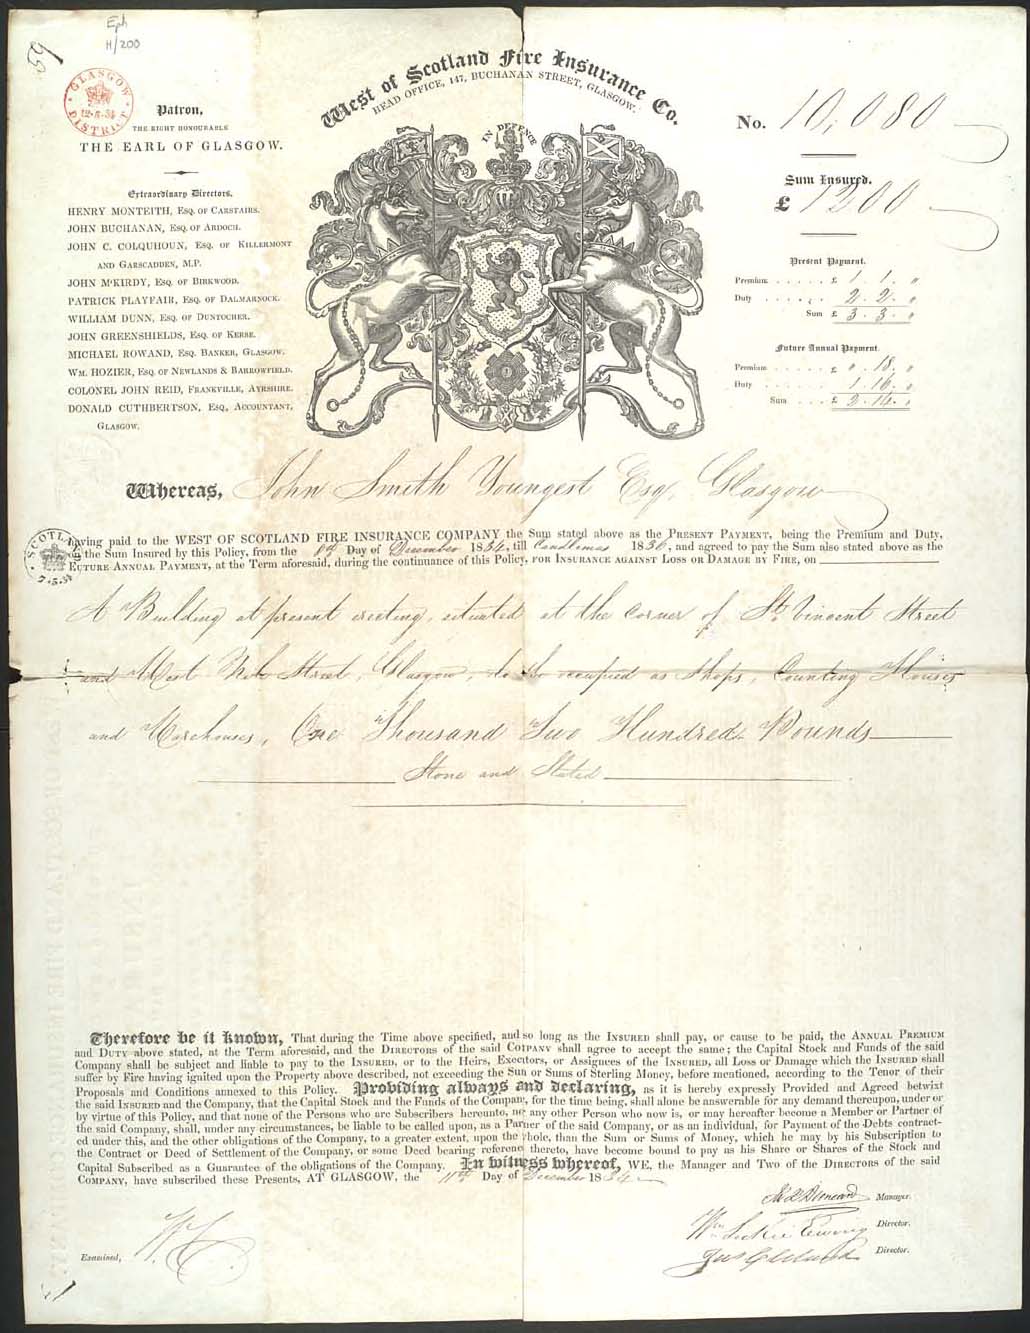 Eph
H/200
GLASGOW DISTRICT
Patron,
THE RIGHT HONOURABLE
THE EARL OF GLASGOW.
Extraordinary Directors.
HENRY MONTEITH, ESQ. OF CARSTAIRS.
JOHN BUCHANAN, ESQ. OF ARDOCH.
JOHN C. COLQUHOUN, ESQ. OF KILLERMONT
AND GARSCADDEN, M.P.
JOHN M'KIRDY, ESQ. OF BIRKWOOD.
PATRICK PLAYFAIR, ESQ. OF DALMARNOCK.
WILLIAM DUNN, ESQ. OF DUNTOCHER.
JOHN GREENSHIELDS, ESQ. OF KERSE.
MICHAEL ROWAND, ESQ. BANKER, GLASGOW.
WM. HOZIER, ESQ. OF NEWLANDS & BARROWFIELD.
COLONEL JOHN REID, FRANKVILLE, AYRSHIRE.
DONALD CUTHBERTSON, ESQ. ACCOUNTANT,
GLASGOW.
West of Scotland Fire Insurance Co.
HEAD OFFICE, 147, BUCHANAN STREET, GLASGOW.
IN DEFENCE
No. 10,080
Sum Insured.
£ 1200
Present Payment.
Premium . . . . . £ 1. 1. "
Duty . . . . . . 2. 2. "
Sum £ 3. 3. "
Future Annual Payment.
Premium . . . . . £ ". 18. "
Duty . . . . . . 1. 16. "
Sum . . . £ 2. 14. "
Whereas, John Smith Youngest Esq. Glasgow
having paid to the WEST OF SCOTLAND FIRE INSURANCE COMPANY the Sum stated above as the PRESENT PAYMENT, being the Premium and Duty,
on the Sum Insured by this Policy, from the Day of December 1834, till Candlemas 1836, and agreed to pay the Sum also stated above as the
FUTURE ANNUAL PAYMENT, at the Term aforesaid, during the continuance of this Policy, FOR INSURANCE AGAINST LOSS OR DAMAGE BY FIRE, on
SCOTLAND
7.5.34
A Building at present erecting, situated at the corner of St. Vincent Street
and West Nile Street, Glasgow, to be occupied as Shops, Counting Houses
and Warehouses, One Thousand Two Hundred Pounds
Stone and Slated
Therefore be it known, That during the Time above specified, and so long as the INSURED shall pay, or cause to be paid, the ANNUAL PREMIUM
and DUTY above stated, at the Term aforesaid, and the DIRECTORS of the said COMPANY shall agree to accept the same; the Capital Stock and Funds of the said
Company shall be subject and liable to pay to the INSURED, or to the Heirs, Executors, or Assignees of the INSURED, all Loss or Damage which the INSURED shall
suffer by Fire having ignited upon the Property above described, not exceeding the Sum or Sums of Sterling Money, before mentioned, according to the Tenor of their
Proposals and Conditions annexed to this Policy. Providing always and declaring, as it is hereby expressly Provided and Agreed betwixt
the said INSURED and the Company, that the Capital Stock and the Funds of the Company, for the time being, shall alone be answerable for any demand thereupon, under or
by virtue of this Policy, and that none of the Persons who are Subscribers hereunto, nor any other Person who now is, or may hereafter become a Member or Partner of
the said Company, shall, under any circumstances, be liable to be called upon, as a Partner of the said Company, or as an individual, for Payment of the Debts contract-
ed under this, and the other obligations of the Company, to a greater extent, upon the whole, than the Sum or Sums of Money, which he may by his Subscription to
the Contract or Deed of Settlement of the Company, or some Deed bearing reference thereto, have become bound to pay as his Share or Shares of the Stock and
Capital Subscribed as a Guarantee of the obligations of the Company. In witness whereof, WE, the Manager and Two of the DIRECTORS of the said
COMPANY, have subscribed these Presents, AT GLASGOW, the 11th Day of December 1834
Manager.
Wm Leckie Ewing Director.
Jas Cleland Director.
Examined,